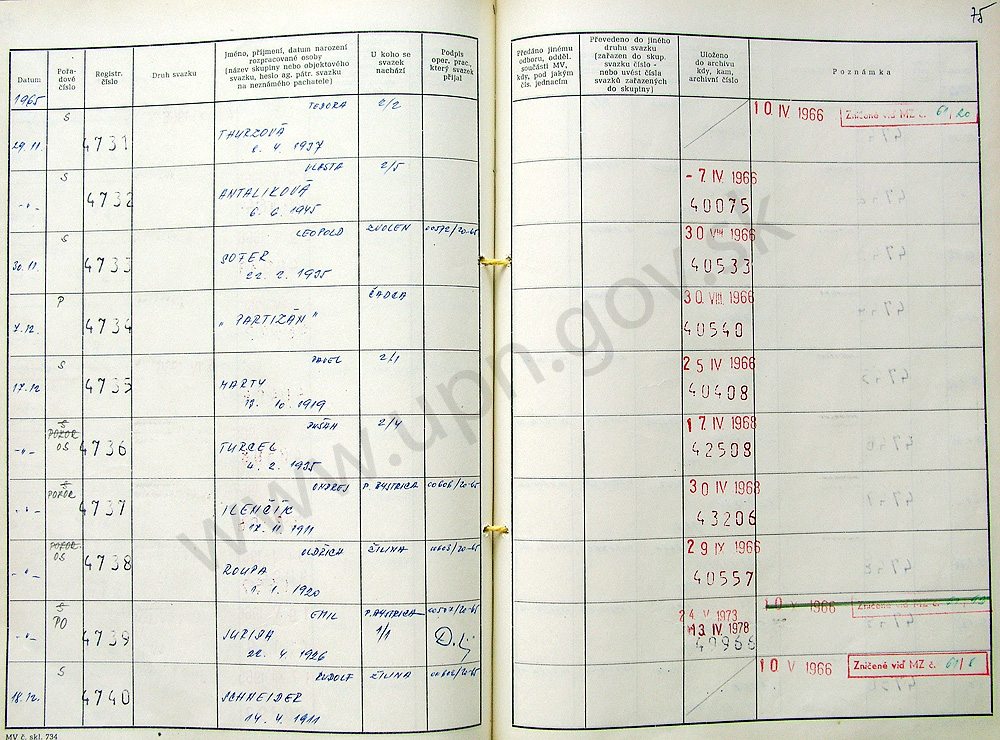 75
Datum
Pořa-
dové
číslo
Registr.
číslo
Druh svazku
Jméno, příjmení, datum narození
rozpracované osoby
(název skupiny nebo objektového
svazku, heslo ag. pátr. svazku
na neznámého pachatele)
U koho se
svazek
nachází
Podpis
oper. prac.,
který svazek
přijal
Předáno jinému
odboru, odděl.
součásti MV,
kdy, pod jakým
čís. jednacím
Převedeno do jiného
druhu svazku
(zařazen do skup.
svazku číslo -
nebo uvést čísla
svazků zařazených
do skupiny)
Uloženo
do archivu
kdy, kam,
archivní číslo
Poznámka
1965
S TEODORA 2/2
29.11. 4731 THURZOVÁ
4. 1937
10 IV 1966 Zničené viď MZ č. 61/20
S VLASTA 2/5
-"- 4732 ANTALIKOVÁ
6. 6. 1945
- 7 IV 1966
40075
S LEOPOLD ZVOLEN
30.11. 4733 SOTER
22. 2. 1935
30 VIII 1966
40533
P ČADCA
7.12. 4734 "PARTIZÁN"
30. VIII. 1966
40540
S PAVEL 2/1
17.12 4735 MARTY
17. 10. 1919
25 IV 1966
40408
S
POZOR
OS DUŠAN 2/4
-"- 4736 TURCEL
4. 2. 1935
17. IV 1968
42508
S
POZOR ONDREJ P. BYSTRICA 00606/20-65
-"- 4737 ILENČÍK
17. 11. 1911
30 IV 1968
43206
POZOR
OS OLDŘICH ŽILINA
-"- 4738 ROUPA
1. 1. 1920
29 IX 1966
40557
S
PO EMIL P. BYSTRICA
1/1
-"- 4739 JURIGA
22. 4. 1926
24 V 1973
13. IV 1978
40966
10 V 1966 Zničené viď MZ č.
S RUDOLF ŽILINA
18.12. 4740 SCHNEIDER
14. 4. 1911
10 V 1966 Zničené viď MZ č. 61/8
www.upn.gov.sk
MV č. skl. 734